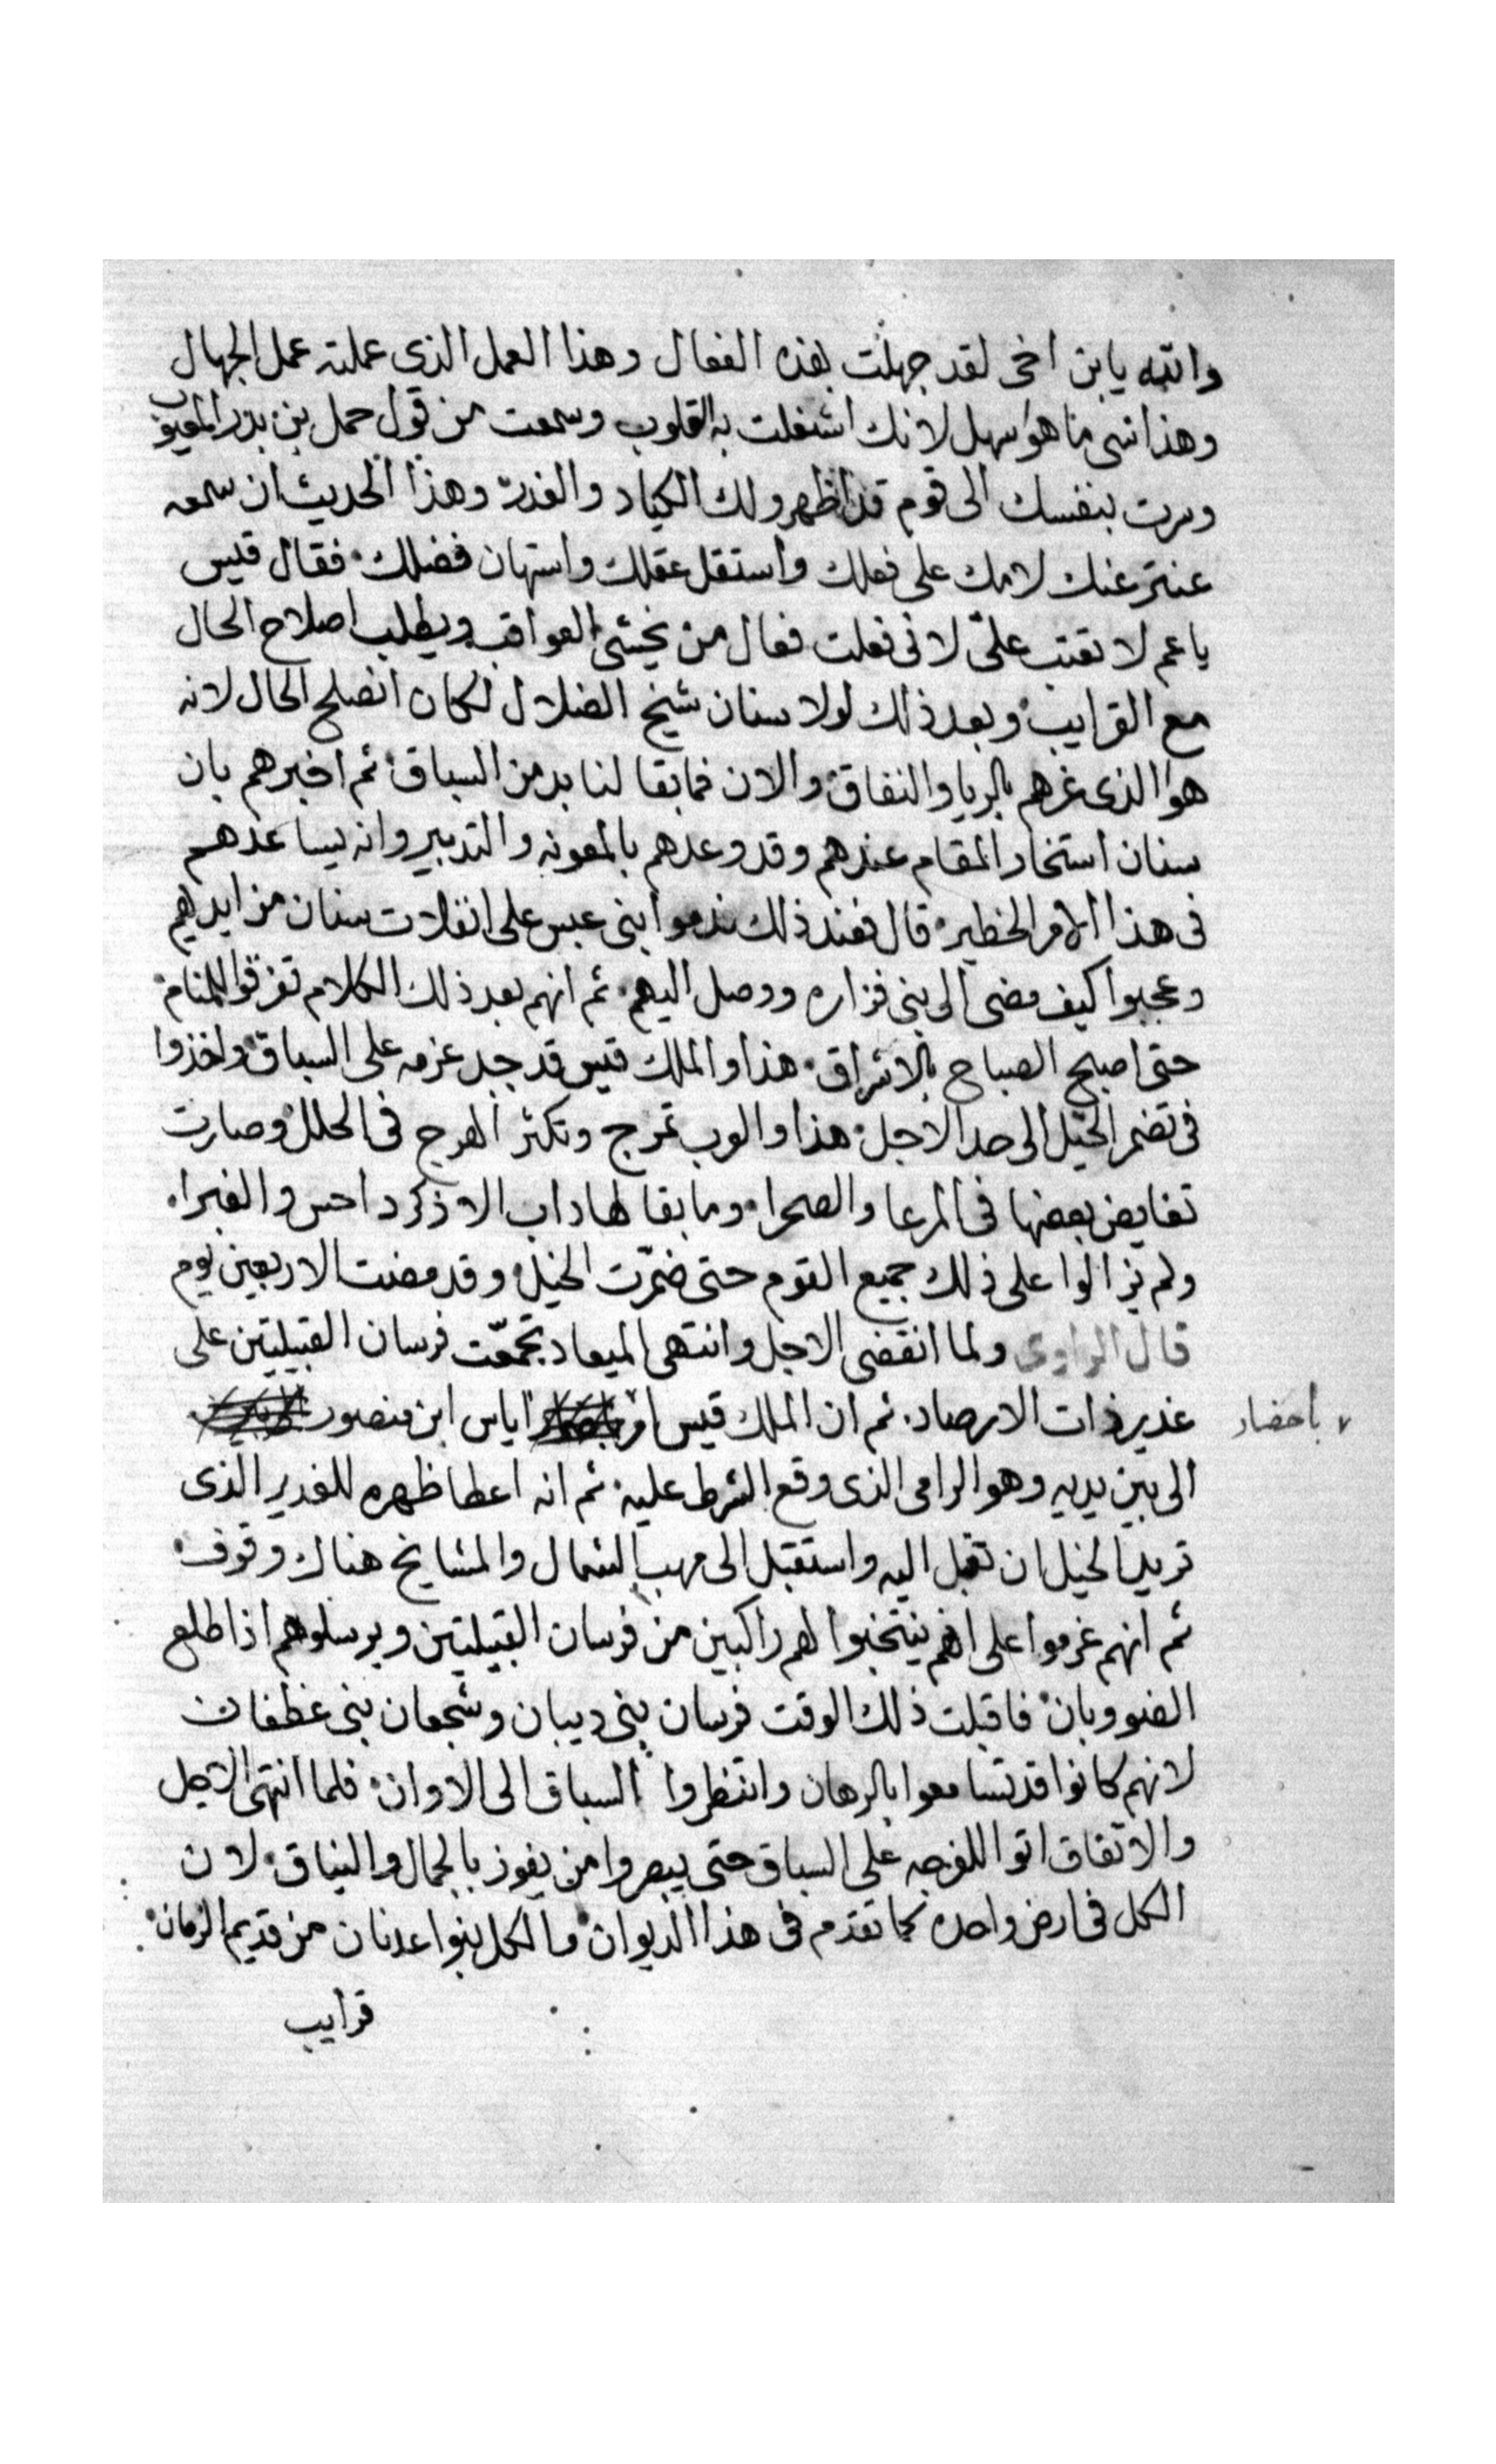 والله يابن اخى لقد جهلت بهذه الفعال وهذا العمل الذى عملته عمل الجهال
وهذا شى ما هو سهل لانك اشغلت به القلوب وسمعت من قول حمل بن بدر المعيوب
وسرت بنفسك الى قوم قد اظهرولك الكياد والغدر وهذا الحديث ان سمعه
عنتر عنك لامك على فعلك واستقل عقلك واستهان فضلك فقال قيس
ياعم لا تعتب علىّ لانى فعلت فعال من يخشى العواقب ويطلب اصلاح الحال
مع القرايب وبعد ذلك لولا سنان شيخ الضلال لكان انصلح الحال لانه
هو الذى غرهم بالريا والنفاق والان فما بقا لنا بد من السباق ثم اخبرهم بان
سنان استخار المقام عندهم وقد وعدهم بالمعونه والتدبير وانه يساعدهم
فى هذا الامر الخطير قال فعند ذلك ندموا بنى عبس على انفلات سنان من ايديهم
وعجبوا كيف مضى الى بنى فزاره ووصل اليهم ثم انهم بعد ذلك الكلام تفرقوا للمنام
حتى اصبح الصباح بالاشراق هذا والملك قيس قد جدل عزمه على السباق واخذوا
فى تضمر الخيل الى حد الاجل هذا والعرب تمرج وتكثر الهرج فى الحلل وصارت
تغايض بعضها فى المرعا والصحرا وما بقا لها داب الا ذكر داحس والغبرا
ولم يزالوا على ذلك جميع القوم حتى ضمّرت الخيل وقد مضت الاربعين يوم
قال الراوى ولما انقضى الاجل وانتهى الميعاد تجمعّت فرسان القبيلتين على
غدير ذات الارصاد ثم ان الملك قيس امر اياس ابن منصور
باحضار
الى بين يديه وهو الرامى الذى وقع الشرط عليه ثم انه اعطا ظهره للغدير الذى
تريد الخيل ان تقبل اليه واستقبل الى مهب الشمال والمشايخ هناك وقوف
ثم انهم عزموا على انهم ينتخبوا لهم راكبين من فرسان القبيلتين ويرسلوهم اذا طلع
الضو وبان فاقبلت ذلك الوقت فرسان بنى ديبان وشجعان بنى غطفان
لانهم كانوا قد تسامعوا بالرهان وانتظروا السباق الى الاوان فلما انتهى الاجل
والاتفاق اتوا للفرجه على السباق حتى يبصروا من يفوز بالجمال والنياق لان
الكل فى ارض واحده كما تقدم فى هذا الديوان والكل بنوا عدنان من قديم الزمان
قرايب